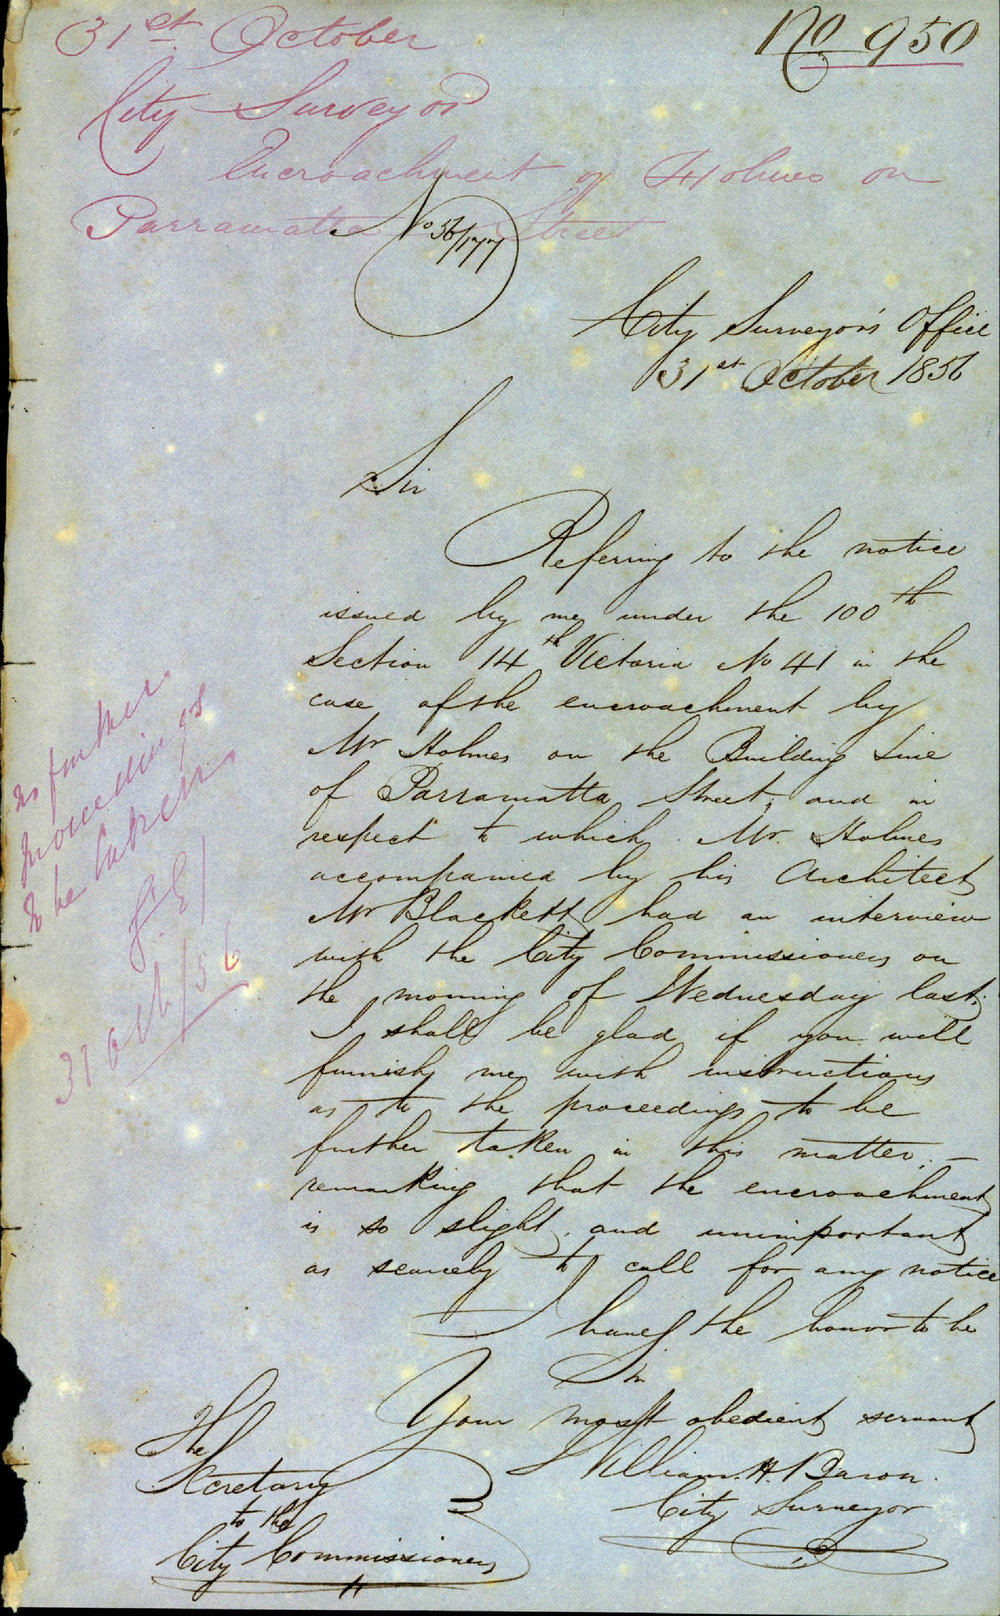 31st October
No 950
City Surveyor
Encroachment of Holmes on
Parramatta Street
No 56/177
City Surveyor's Office
31st October 1856
Sir
Referring to the notice
issued by me under the 100th
Section 14th Victoria No 41 in the
case of the encroachment by
Mr Holmes on the Building Line
of Parramatta Street; and in
respect to which Mr. Holmes
accompanied by his Architect
Mr Blackett had an interview
with the City Commissioners on
the morning of Wednesday last;
I shall be glad if you will
furnish me with instructions
as to the proceedings to be
further taken in this matter; —
remarking that the encroachment
is so slight, and unimportant
as scarcely to call for any notice
I have the honor to be
Sir
Your most obedient servant
William. H. Baron.
City Surveyor
The
Secretary
to the
City Commissioners
no further
proceedings
to be taken
31 Oct/56